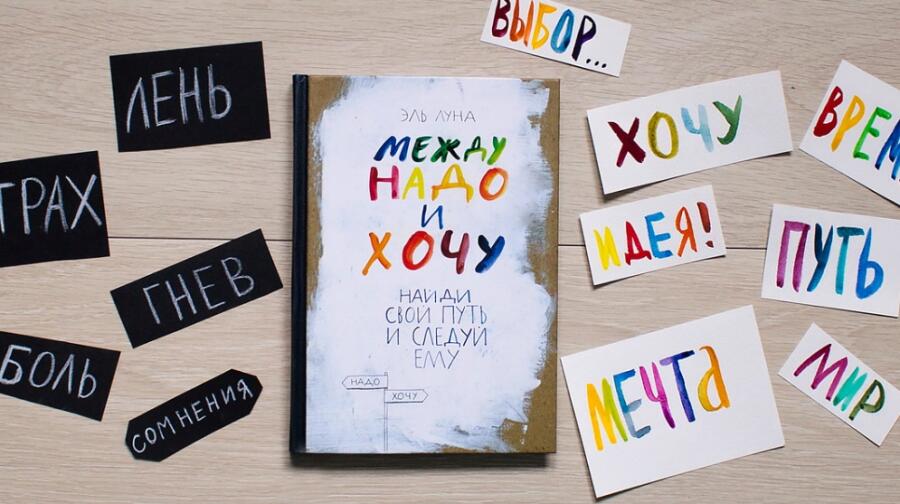 ЛЕНЬ
ТРАХ
ГНЕВ
БОЛЬ
СОМНЕНИЯ
ЭЛЬ ЛУНА
МЕЖДУ
НАДО
И
ХОЧУ
НАЙДИ
СВОЙ ПУТЬ
И СЛЕДУЙ
ЕМУ
НАДО
ХОЧУ
ВЫБОР...
ХОЧУ
ВРЕМ
ИДЕЯ!
ПУТЬ
МЕЧТА
МИР